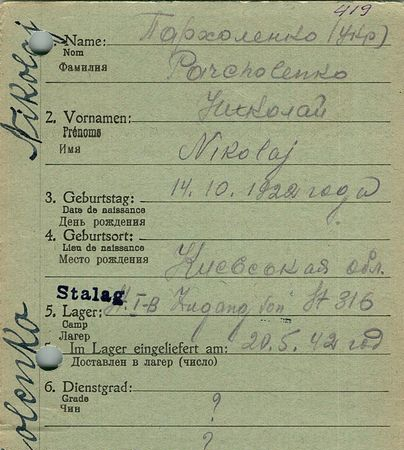 419
Name: Пархоленко (Укр)
Nom
Фамилия Parcholenko
Николай
2. Vornamen:
Prénoms
Имя Nikolaj
3. Geburtstag: 14.10.1922 года
Date de naissance
День рождения
4. Geburtsort:
Lieu de naissance
Место рождения Киевской обл.
Stalag
5. Lager: I-B Zugang von St 316
Camp
Лагер
Im Lager eingeliefert am: 20.5.42 год
Доставлен в лагер (число)
6. Dienstgrad: ?
Grade
Чин
?
Nikolaj
olenko